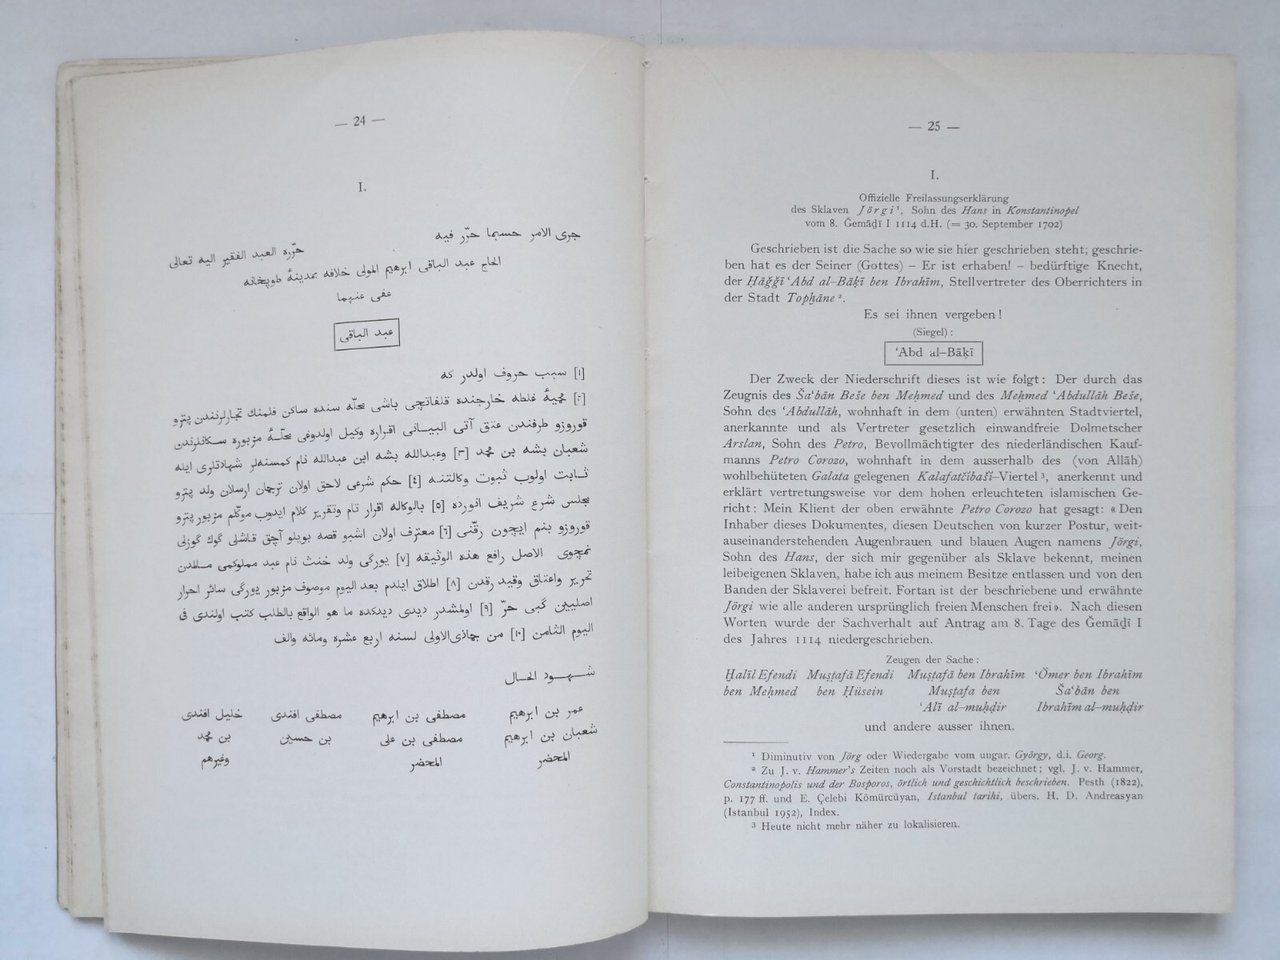 — 24 —
I.
جرى الامر حسبما حرّر فيه
حرّره العبد الفقير اليه تعالى
الحاج عبد الباقى ابرهيم المولى خلافه بمدينهٔ طوپخانه
عفى عنهما
عبد الباقى
[١] سبب حروف اولدر كه
[٢] محميهٔ غلطه خارجنده قلفاتچى باشى محلّه سنده ساكن فلمنك تجارلرندن پترو
قوروزو طرفندن عتق آتى البيانى اقراره وكيل اولدوغى محلّهٔ مزبوره سكانلرندن
شعبان بشه بن محمد [٣] وعبدالله بشه ابن عبدالله نام كمسنه‌لر شهادتلرى ايله
ثابت اولوب ثبوت وكالتنه [٤] حكم شرعى لاحق اولان ترجمان ارسلان ولد پترو
مجلس شرع شريف انورده [٥] بالوكاله اقرار تام وتقرير كلام ايدوب موكّلم مزبور پترو
قوروزو بنم ايچون رقّنى [٦] معترف اولان اشبو قصه بويلو آچق قاشلى گوك گوزلى
نمچوى الاصل رافع هذه الوثيقه [٧] يورگى ولد خنث نام عبد مملوكمى مالمدن
تحرير واعتاق وقيد رقدن [٨] اطلاق ايلدم بعد اليوم موصوف مزبور يورگى سائر احرار
اصليين گبى حرّ [٩] اولمشدر ديدى ديدكده ما هو الواقع بالطلب كتب اولندى فى
اليوم الثامن [١٠] من جمادى‌الاولى لسنه اربع عشره ومائه والف
شهود الحال
عمر بن ابرهيم مصطفى بن ابرهيم مصطفى افندى خليل افندى
شعبان بن ابرهيم مصطفى بن على بن حسين بن محمد
المحضر المحضر وغيرهم
— 25 —
I.
Offizielle Freilassungserklärung
des Sklaven Jörgi¹, Sohn des Hans in Konstantinopel
vom 8. Ǧemāḏī I 1114 d.H. (= 30. September 1702)
Geschrieben ist die Sache so wie sie hier geschrieben steht; geschrie-
ben hat es der Seiner (Gottes) – Er ist erhaben! – bedürftige Knecht,
der Ḥāǧǧī ʿAbd al–Bāḳī ben Ibrahīm, Stellvertreter des Oberrichters in
der Stadt Topḫāne².
Es sei ihnen vergeben!
(Siegel):
ʿAbd al–Bāḳī
Der Zweck der Niederschrift dieses ist wie folgt: Der durch das
Zeugnis des Šaʿbān Beše ben Meḥmed und des Meḥmed ʿAbdullāh Beše,
Sohn des ʿAbdullāh, wohnhaft in dem (unten) erwähnten Stadtviertel,
anerkannte und als Vertreter gesetzlich einwandfreie Dolmetscher
Arslan, Sohn des Petro, Bevollmächtigter des niederländischen Kauf-
manns Petro Corozo, wohnhaft in dem ausserhalb des (von Allāh)
wohlbehüteten Galata gelegenen Kalafatčībašī–Viertel³, anerkennt und
erklärt vertretungsweise vor dem hohen erleuchteten islamischen Ge-
richt: Mein Klient der oben erwähnte Petro Corozo hat gesagt: «Den
Inhaber dieses Dokumentes, diesen Deutschen von kurzer Postur, weit-
auseinanderstehenden Augenbrauen und blauen Augen namens Jörgi,
Sohn des Hans, der sich mir gegenüber als Sklave bekennt, meinen
leibeigenen Sklaven, habe ich aus meinem Besitze entlassen und von den
Banden der Sklaverei befreit. Fortan ist der beschriebene und erwähnte
Jörgi wie alle anderen ursprünglich freien Menschen frei». Nach diesen
Worten wurde der Sachverhalt auf Antrag am 8. Tage des Ǧemāḏī I
des Jahres 1114 niedergeschrieben.
Zeugen der Sache:
Ḫalīl Efendi Muṣṭafā Efendi Muṣṭafā ben Ibrahīm ʿÖmer ben Ibrahīm
ben Meḥmed ben Ḥüsein Muṣṭafa ben Šaʿbān ben
ʿAlī al–muḥḍir Ibrahīm al–muḥḍir
und andere ausser ihnen.
¹ Diminutiv von Jörg oder Wiedergabe vom ungar. György, d.i. Georg.
² Zu J. v. Hammer's Zeiten noch als Vorstadt bezeichnet; vgl. J. v. Hammer,
Constantinopolis und der Bosporos, örtlich und geschichtlich beschrieben. Pesth (1822),
p. 177 ff. und E. Çelebi Kömürcüyan, Istanbul tarihi, übers. H. D. Andreasyan
(Istanbul 1952), Index.
³ Heute nicht mehr näher zu lokalisieren.